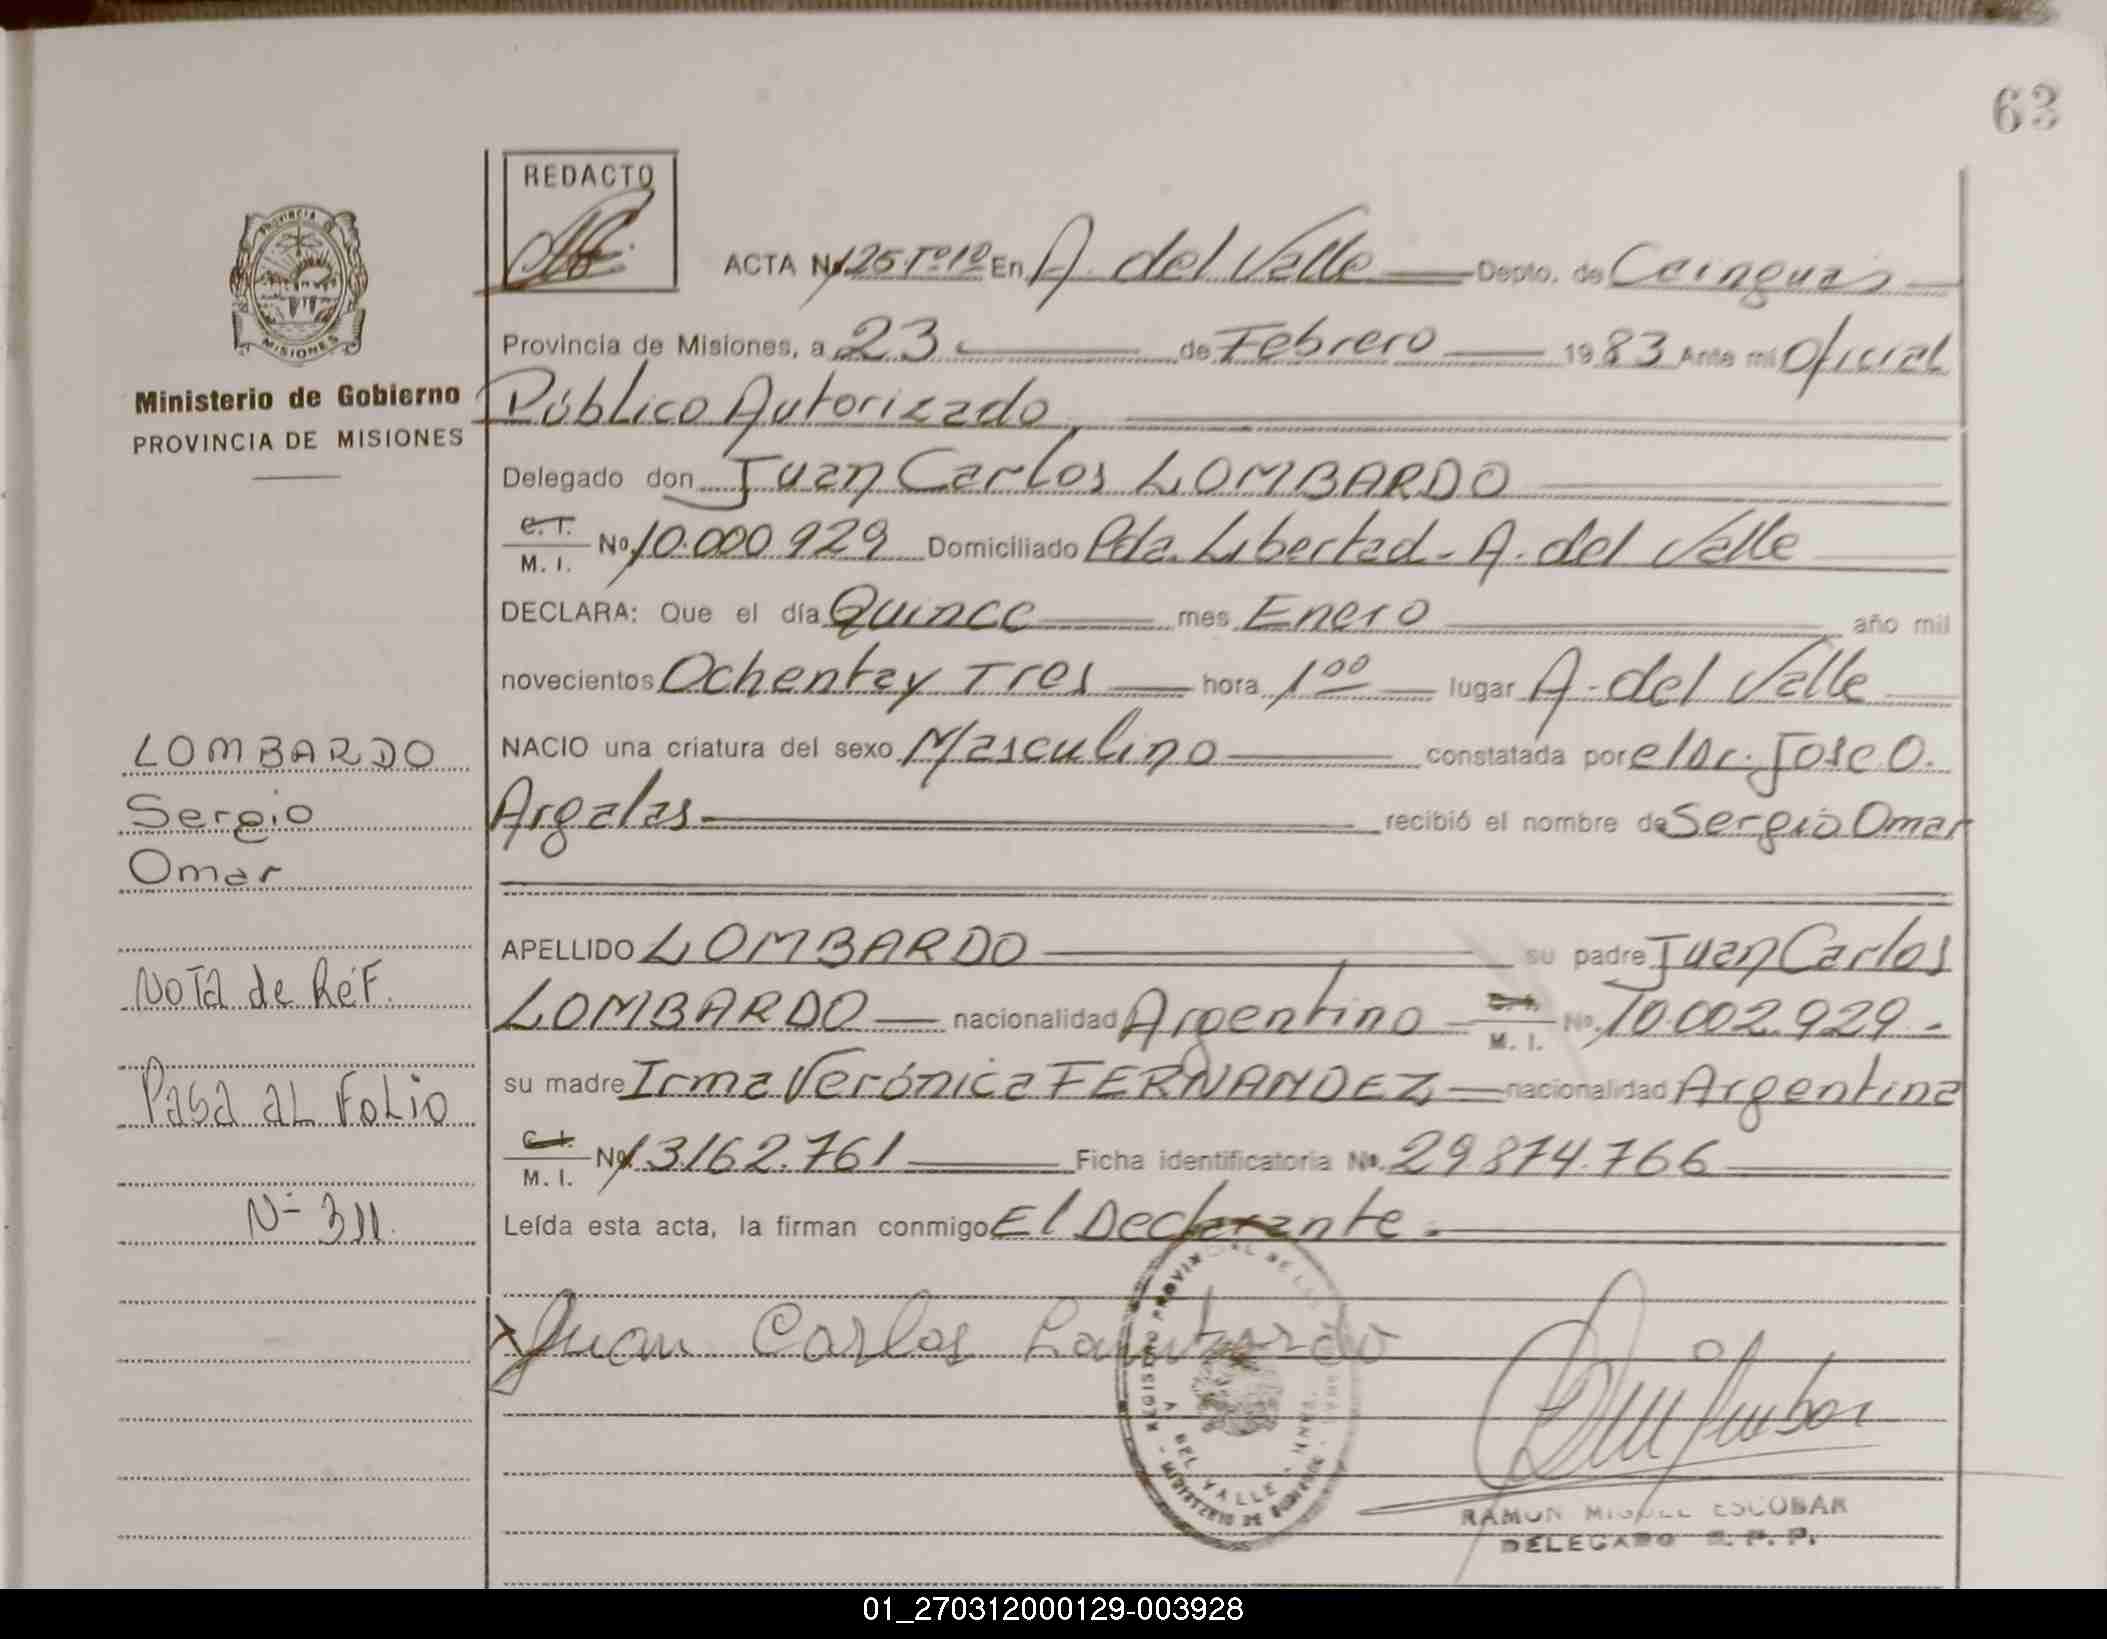 63
REDACTO
ACTA Nº 125 Tº 1º En A. del Valle Depto. de Cainguás
Provincia de Misiones, a 23 de Febrero 1983 Ante mí Oficial
Público Autorizado
Delegado don Juan Carlos LOMBARDO
C. I.
M. I. Nº 10.000.929 Domiciliado Pda. Libertad - A. del Valle
DECLARA: Que el día Quince mes Enero año mil
novecientos Ochenta y Tres hora 1⁰⁰ lugar A. del Valle
NACIO una criatura del sexo Masculino constatada por el Dr. Jose O.
Argalas recibió el nombre de Sergio Omar
APELLIDO LOMBARDO su padre Juan Carlos
LOMBARDO nacionalidad Argentino M. I. Nº 10.002.929 -
su madre Irma Verónica FERNANDEZ nacionalidad Argentina
C. I.
M. I. Nº 13.162.761 Ficha identificatoria Nº 29.874.766
Leída esta acta, la firman conmigo El Declarante.
Juan Carlos Lombardo
REGISTRO PROVINCIAL DE
A. DEL VALLE - MNES.
MINISTERIO DE GOBIERNO
RAMON MIGUEL ESCOBAR
DELEGADO R. P. P.
PROVINCIA
MISIONES
Ministerio de Gobierno
PROVINCIA DE MISIONES
LOMBARDO
Sergio
Omar
NOTA de REF.
PASA AL FOLIO
Nº 311.
01_270312000129-003928